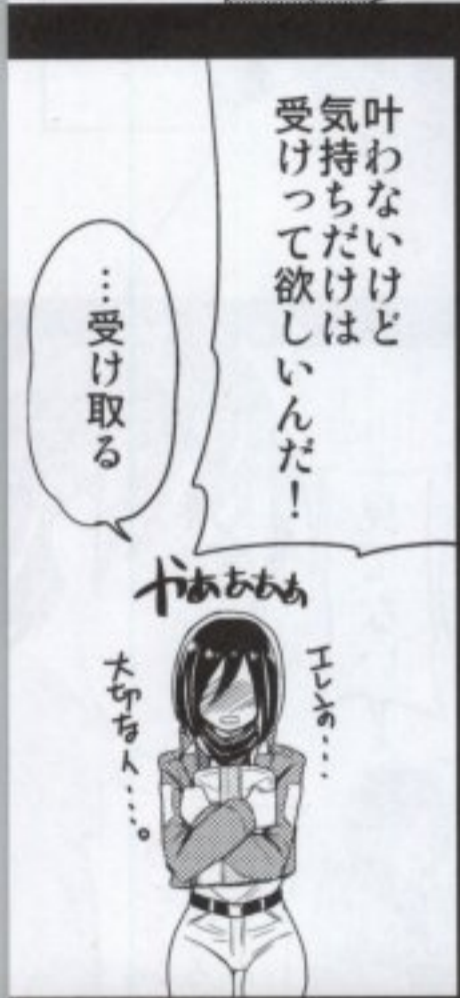 叶わないけど
気持ちだけは
受けって欲しいんだ！
…受け取る
やぁぁぁぁ
エレンの…
大切な人…。